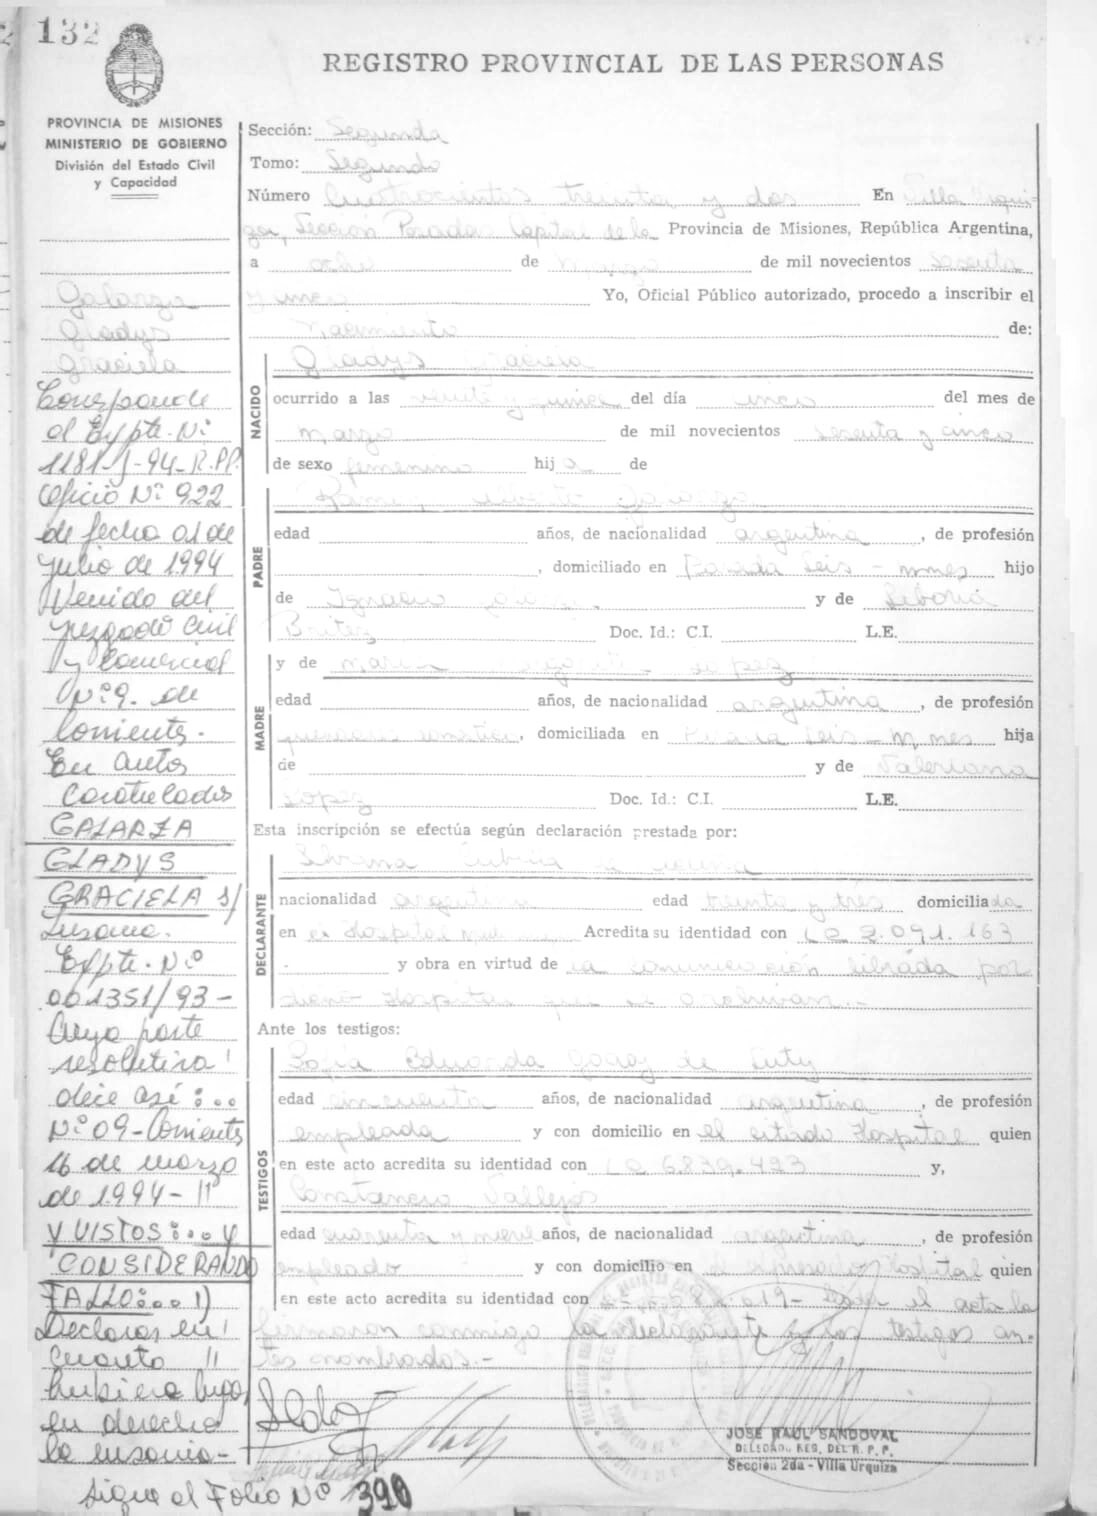 132
REGISTRO PROVINCIAL DE LAS PERSONAS
PROVINCIA DE MISIONES
MINISTERIO DE GOBIERNO
División del Estado Civil
y Capacidad
Galarza
Gladys
Graciela
Corresponde
al Expte. Nº
1181-J-94-R.P.P.
Oficio Nº 922
de fecha 01 de
julio de 1994
Venido del
juzgado Civil
y Comercial
Nº 9. de
Corrientes.
En autos
Caratulados
GALARZA
GLADYS
GRACIELA s/
Insania.
Expte. Nº
001351/93-
Cuya parte
resolutiva
dice así:..
Nº 09-Corrientes
16 de marzo
de 1994-
Y VISTOS:.. y
CONSIDERANDO
FALLO:... 1)
Declarar en
cuanto
hubiera lugar
en derecho
la insania-
Sigue al Folio Nº 390
Sección: Segunda
Tomo: Segundo
Número Cuatrocientos treinta y dos En Villa Urqui-
za, Sección Posadas Capital de la Provincia de Misiones, República Argentina,
a ocho de Marzo de mil novecientos sesenta
y cinco Yo, Oficial Público autorizado, procedo a inscribir el
Nacimiento de:
NACIDO
Gladys Graciela
ocurrido a las veinte y quince del día cinco del mes de
Marzo de mil novecientos sesenta y cinco
de sexo femenino hija de
PADRE
Galarza
edad años, de nacionalidad argentina, de profesión
, domiciliado en Parada Leis - Mnes hijo
de Ignacio y de Liboria
Britez Doc. Id.: C.I. L.E.
MADRE
y de Lopez
edad años, de nacionalidad argentina, de profesión
, domiciliada en Parada Leis - Mnes hija
de y de Valeriana
Lopez Doc. Id.: C.I. L.E.
Esta inscripción se efectúa según declaración prestada por:
DECLARANTE
nacionalidad argentina edad treinta y tres domiciliada
en el Hospital Acredita su identidad con L C 2.091.163
y obra en virtud de la comunicación librada por
dicho Hospital que se archivan.-
Ante los testigos:
TESTIGOS
Sofía Eduarda Godoy de
edad cincuenta años, de nacionalidad argentina, de profesión
empleada y con domicilio en el citado Hospital quien
en este acto acredita su identidad con L C 6.839.423 y,
Constancio Vallejos
edad cuarenta y nueve años, de nacionalidad argentina, de profesión
empleado y con domicilio en el expresado Hospital quien
en este acto acredita su identidad con 019- el acta la
firmaron conmigo la declarante y los testigos an-
tes nombrados.-
JOSE RAUL SANDOVAL
DELEGADO RES. DEL R. P. P.
Sección 2da - Villa Urquiza